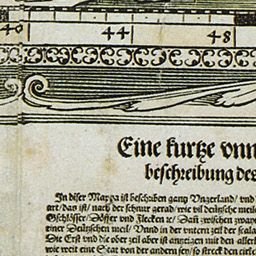 40 44 48
Eine kurtze vnn
beschreibung des
In diser Mappa ist beschriben gantz Vngerland/ vnd
art/ das ist/ nach der schnur grad/ wie vil deutsche meilen
Gschlösser/ Dörffer vnd Flecken ꝛc/ Dañ zwischen zwayen
einer Deutschen meil/ Vnnd in der vntern zeil der scala
Die Erst vnd die ober zeil aber ist anzeigen mit den aller
wie weit eine Stat von der andern sey/ so streck den zirckel